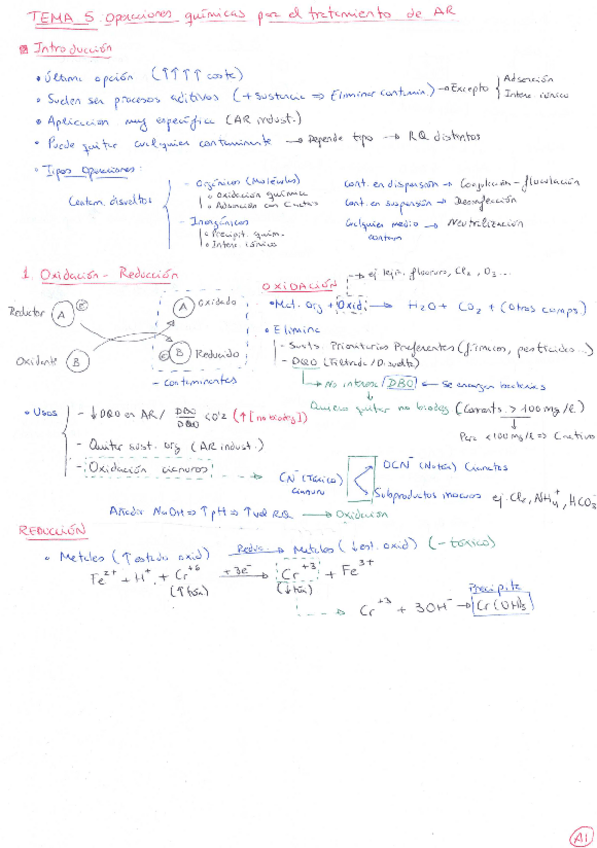 TEMA 5: Operaciones químicas par el tratamiento de AR
Introducción
• Última opción (↑↑↑↑ coste)
• Suelen ser procesos aditivos (+ sustancia ⇒ Eliminar contamin.) → Excepto { Adsorción
Interc. iónico
• Aplicacion muy específica (AR indust.)
• Puede quitar cualquier contaminante → Depende tipo → RQ distintos
• Tipos operaciones:
Contam. disueltos
- Orgánicos (Moléculas)
• Oxidación química
• Adsorción con C activo
- Inorgánicos
• Precipit. quím.
• Interc. iónicos
Cont. en dispersión → Coagulación - floculación
Cont. en suspensión → Desinfección
Cualquier medio → Neutralización
contam
1. Oxidación - Reducción
Reductor A e⁻
Oxidante B
A Oxidado
e⁻ B Reducido
- contaminantes
OXIDACIÓN
ej. lejía, fluoruro, Cl₂, O₃...
• Mat. Org + Oxid → H₂O + CO₂ + (Otros comps)
• Elimina
- Susts Prioritarias Preferentes (fármacos, pesticidas...)
- DQO (Filtrada / Disuelta)
→ No interesa DBO ← Se encargan bacterias
Quiero quitar no biodeg (Concents. > 100 mg/l)
Para <100 mg/l ⇒ C activo
• Usos
- ↓ DQO en AR / DBO/DQO < 0'2 (↑[no biodeg])
- Quitar sust. org (AR indust.)
- Oxidación cianuros → CN⁻ (Tóxico) cianuro
OCN⁻ (No tóx) Cianatos
Subproductos inocuos ej. Cl₂, NH₄⁺, HCO₃⁻
Añadir NaOH ⇒ ↑pH ⇒ ↑vel RQ → Oxidación
REDUCCIÓN
• Metales (↑ estado oxid) Reduc → Metales (↓ est. oxid) (- tóxico)
Fe²⁺ + H⁺ + Cr⁺⁶ +3e⁻ → Cr⁺³ + Fe³⁺
(↑ tóx) (↓ tóx)
Cr⁺³ + 3OH⁻ → Cr(OH)₃
Precipita
A1